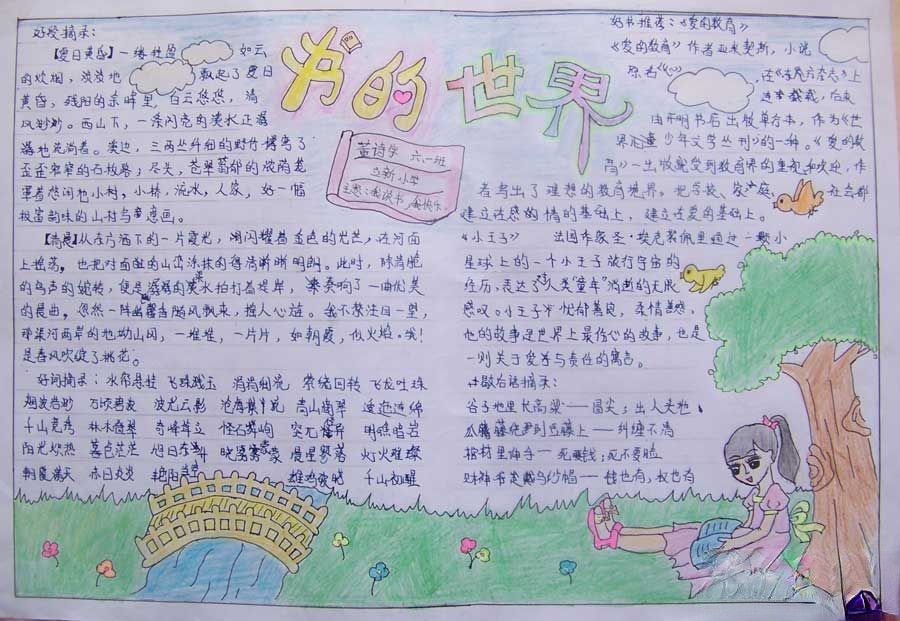 书的世界
董诗宇 六一班
立新小学
主题:爱读书,爱快乐
好段摘录:
【夏日黄昏】一缕轻盈 如云
的炊烟,淡淡地 飘起了夏日
黄昏,残阳的余晖里,白云悠悠,清
风妙妙。西山下,一条闪亮的溪水正潺
潺地流淌着。溪边,三两丛纤细的野竹掩窝了
歪歪窄窄的石板路;尽头,苍翠葡郁的浓荫笼
罩着悠闲地小村,小桥,流水,人家,好一幅
极富韵味的山村写意画。
【清晨】从东方洒下的一片霞光,湖闪耀着金色的光芒,在河面
上摇荡,也把对面的山峦涂抹的得清晰明朗。此时,随着脆
的鸟声的婉转,便是 溪水拍打着堤岸,凑奏响了一曲优美
的晨曲。忽然一阵幽馨香随风飘来,撞人心怀。我不禁注目一望,
那渠河两岸的地坳山间,一堆堆,一片片,如朝霞,似火焰。哦!
是春风吹绽了桃花。
好词摘录:水帘悬挂 飞珠溅玉 涓涓细流 萦绕回转 飞龙吐珠
烟波浩渺 万顷碧波 波光云影 沧海 青山翡翠 逶迤连绵
千山竞秀 林木葱翠 奇峰耸立 怪石嶙峋 突兀 明礁暗岩
阳光炽热 暮色茫茫 旭日东升 晓雾 晨星寥落 灯火璀璨
朝霞满天 赤日炎炎 艳阳 雄鸡破晓 千山初醒
好书推荐:《爱的教育》
《爱的教育》 作者亚米契斯,小说
原名《心》 ,在《东方杂志》上
连载,后来
由开明书店出版单行本,作为《世
界 少年文学丛刊》的一种。《爱的教
育》一出版就受到教育界的重视和欢迎,作
者写出了理想的教育境界。把学校、家庭、社会都
建立在感的情的基础上,建立在爱的基础上。
《小王子》 法国作家圣·埃克絮佩里通过一颗小
星球上的一个小王子旅行宇宙的
经历,表达了对人类"童年"消逝的无限
感叹。小王子 忧郁善良,柔情善感,
他的故事是世界上最伤心的故事,也是
一则关于爱等与责任的寓言。
#歇后语摘录:
谷子地里长高粱——冒尖;出人头地
瓜藤 到豆藤上——纠缠不清
棺材里伸手——死要钱;死不要脸
财神爷 戴乌纱帽——钱也有,权也有